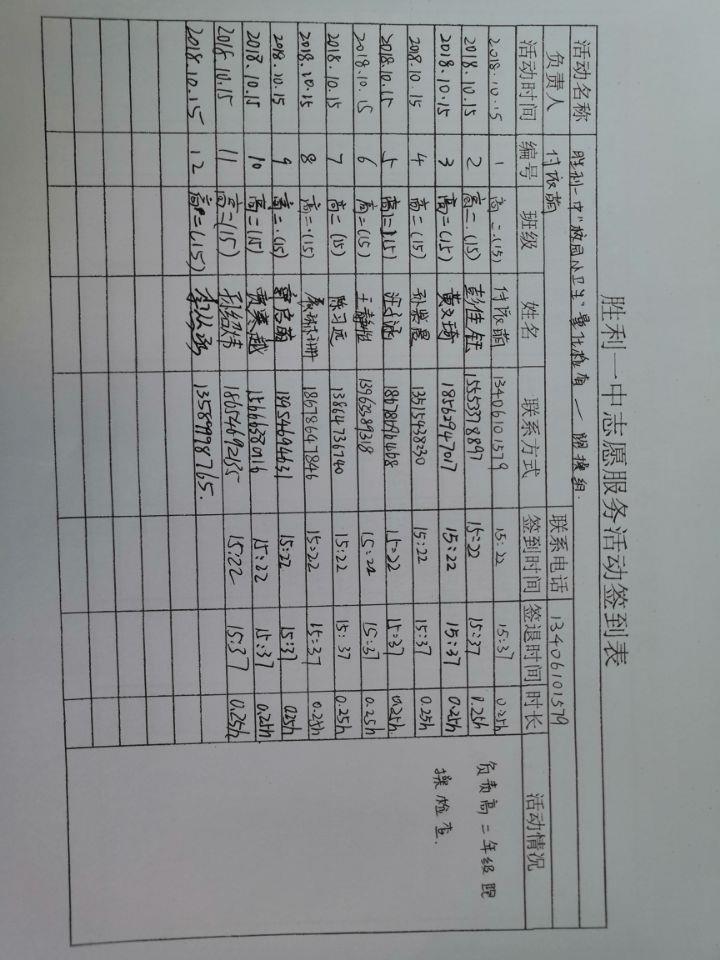 胜利一中志愿服务活动签到表
活动名称 胜利一中"校园小卫生"量化检查—眼操组
负责人 付依萌 联系电话 13406101579
活动时间 编号 班级 姓名 联系方式 签到时间 签退时间 时长 活动情况
2018.10.15 1 高二.(15) 付依萌 13406101579 15:22 15:37 0.25h 负责高二年级眼
2018.10.15 2 高二.(15) 彭佳钰 15553978897 15:22 15:37 0.25h 操检查.
2018.10.15 3 高二(15) 黄文琦 18562947017 15:22 15:37 0.25h
2018.10.15 4 高二(15) 13515438230 15:22 15:37 0.25h
2018.10.15 5 高二(15) 15:22 15:37 0.25h
2018.10.15 6 高二(15) 王静怡 13963389318 15:22 15:37 0.25h
2018.10.15 7 高二(15) 陈习远 13864736740 15:22 15:37 0.25h
2018.10.15 8 高二.(15) 18678647846 15:22 15:37 0.25h
2018.10.15 9 高二.(15) 13954694631 15:22 15:37 0.25h
2018.10.15 10 高二(15) 15:22 15:37 0.25h
2018.10.15 11 高二(15) 孙绍伟 18654692135 15:22 15:37 0.25h
2018.10.15 12 高二(15) 13589978765.